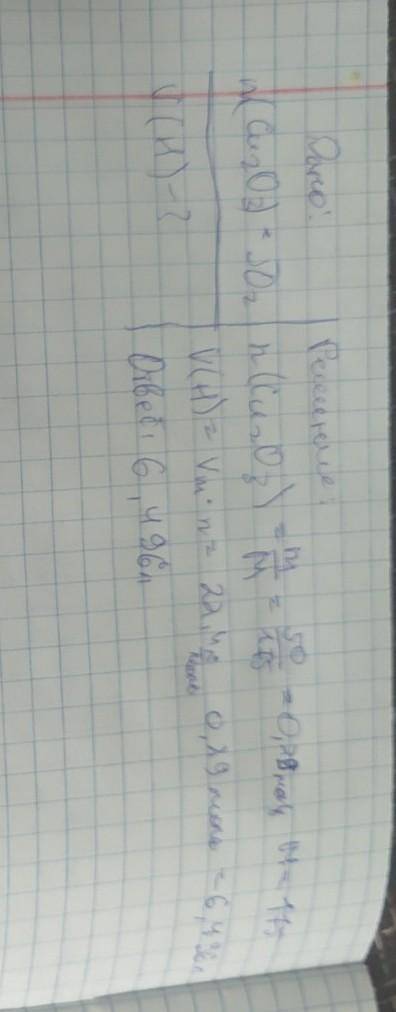 Дано:
m(Cu₂O₃) = 50г
V(H) - ?
Решение:
n(Cu₂O₃) = m/M = 50/176 = 0,29 моль M = 17
V(H) = Vm · n = 22,4 л/моль 0,29 моль = 6,496л
Ответ: 6,496л